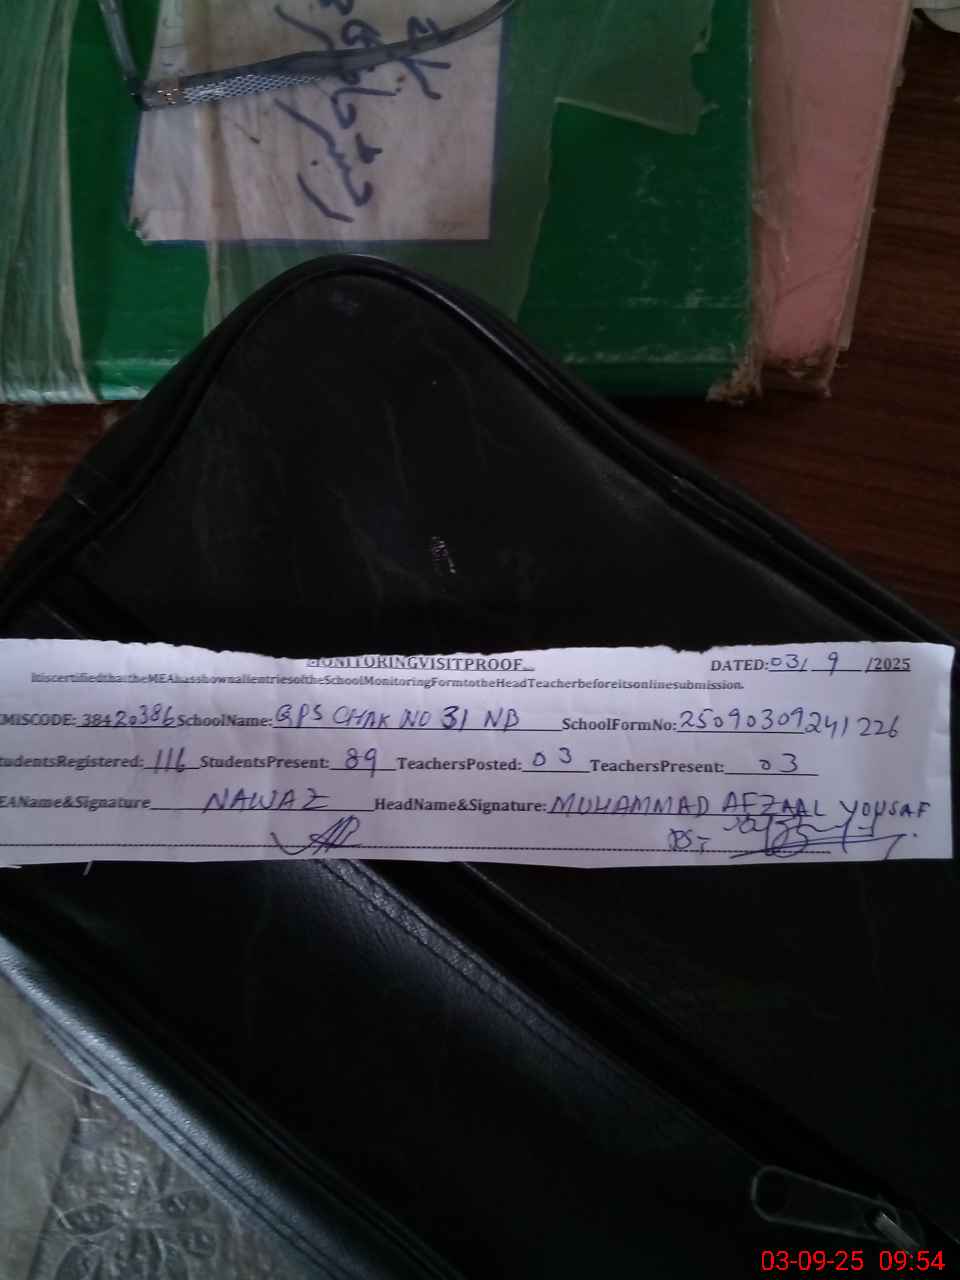 MONITORINGVISITPROOF
DATED:03/ 9 /2025
ItiscertifiedthattheMEAhasshownallentriesoftheSchoolMonitoringFormtotheHeadTeacherbeforeitsonlinesubmission.
MISCODE: 38420386 SchoolName: GPS CHAK NO 31 NB SchoolFormNo: 25090309241226
tudentsRegistered: 116 StudentsPresent: 89 TeachersPosted: 03 TeachersPresent: 03
EAName&Signature NAWAZ HeadName&Signature: MUHAMMAD AFZAAL YOUSAF
03-09-25 09:54